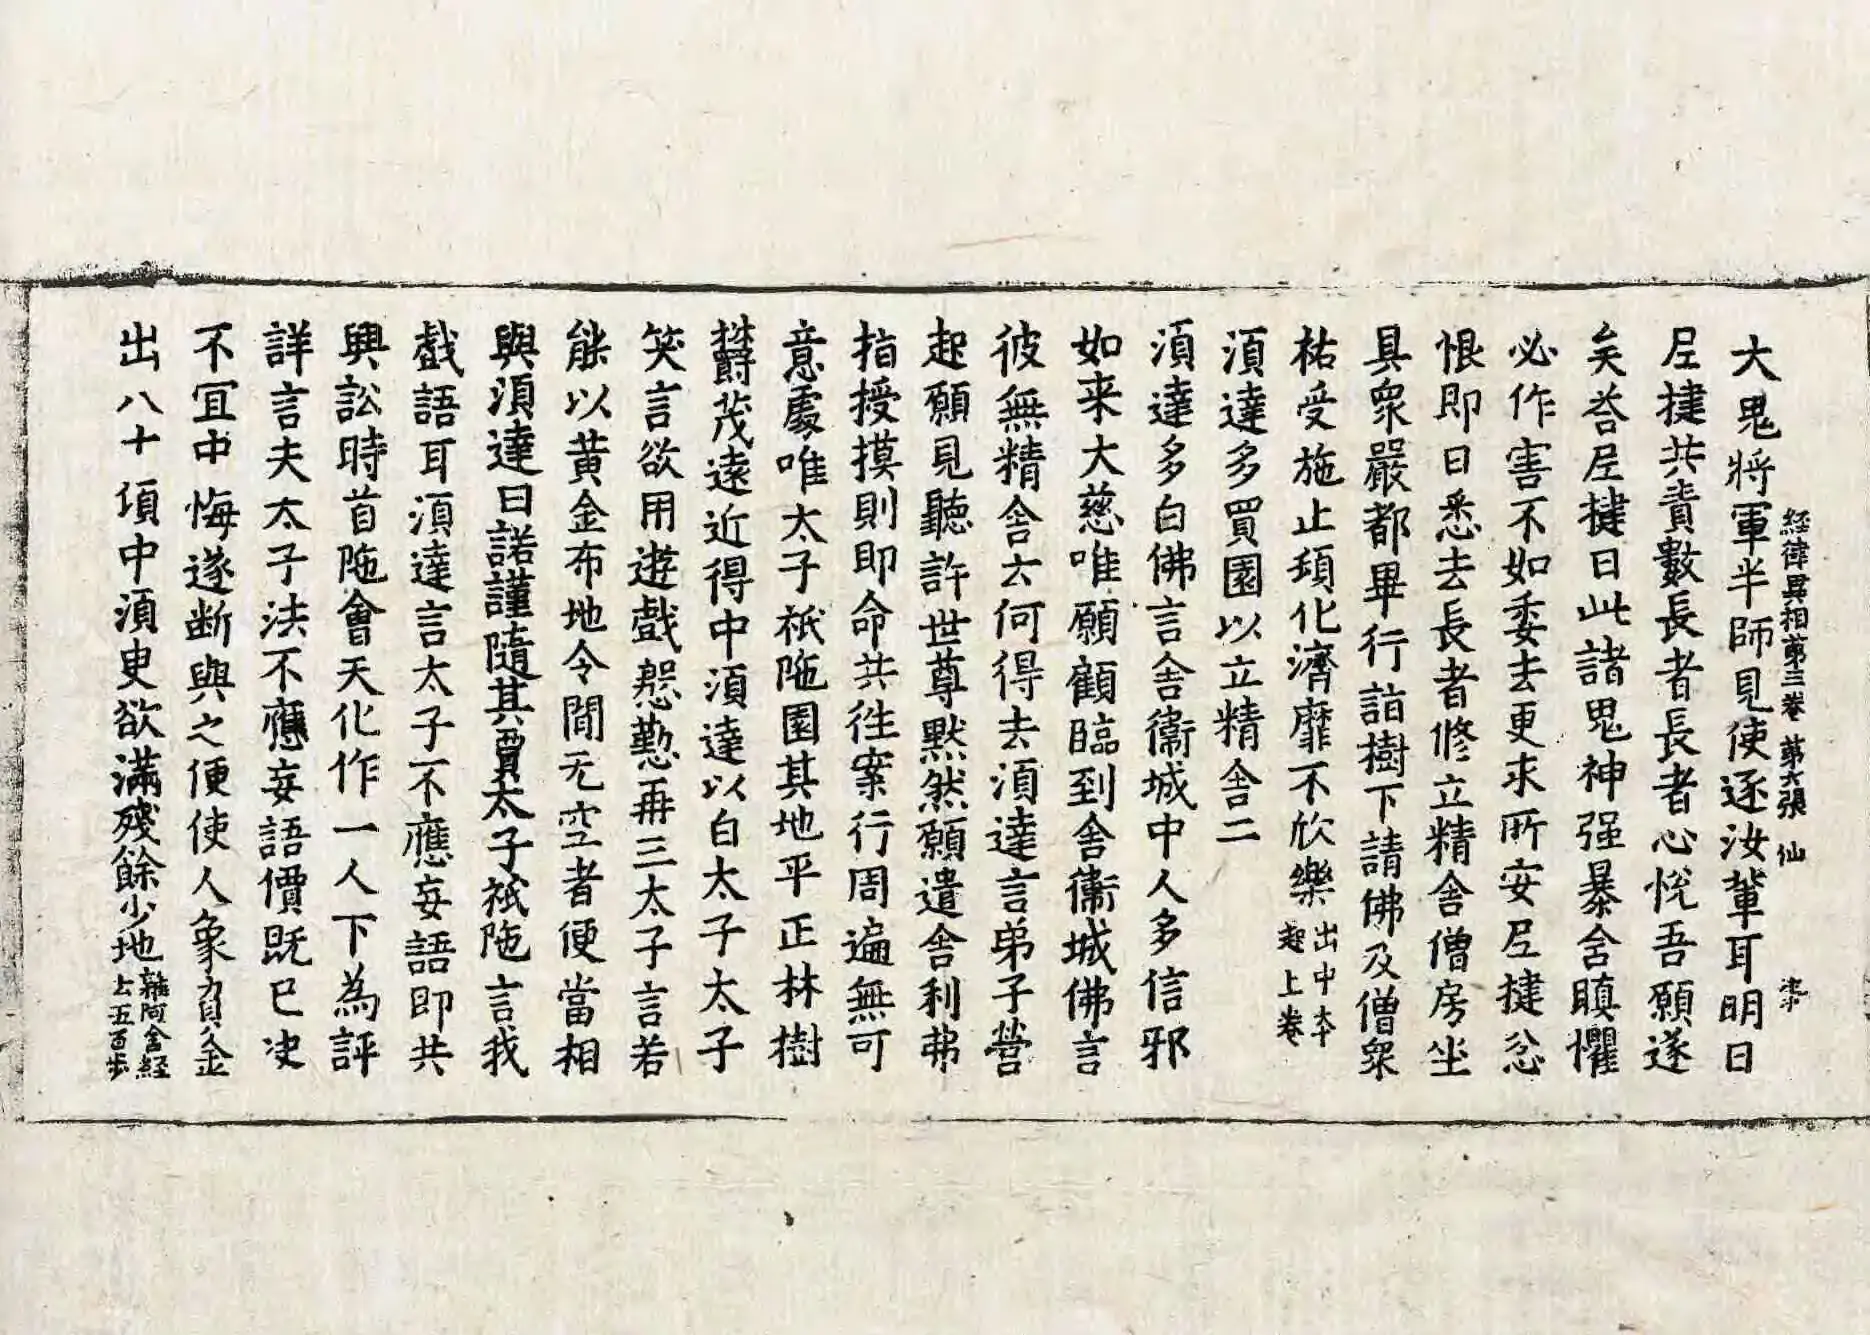 經律異相第三卷 第六張 仙
大鬼將軍半師見使逐汝輩耳明日
尼揵共責數長者長者心悅吾願遂
矣荅尼揵曰此諸鬼神强暴含瞋懼
必作害不如委去更求所安尼揵忿
恨即日悉去長者修立精舍僧房坐
具衆嚴都畢行詣樹下請佛及僧衆
祐受施止頊化濟靡不欣樂出中本起上卷
湏達多買園以立精舍二
湏達多白佛言舍衞城中人多信邪
如来大慈唯願顧臨到舍衞城佛言
彼無精舍云何得去湏達言弟子營
起願見聽許世尊默然願遣舍利弗
指授摸則即命共徃案行周遍無可
意處唯太子祇陁園其地平正林樹
欝茂遠近得中湏達以白太子太子
笑言欲用遊戲慇懃再三太子言若
能以黄金布地令閒无空者便當相
與湏達曰諾謹隨其賈太子祇陁言我
戲語耳湏達言太子不應妄語即共
興訟時首陁會天化作一人下為評
詳言夫太子法不應妄語價既已决
不宜中悔遂斷與之便使人象負金
出八十頃中湏臾欲滿殘餘少地雜阿含經上五百步